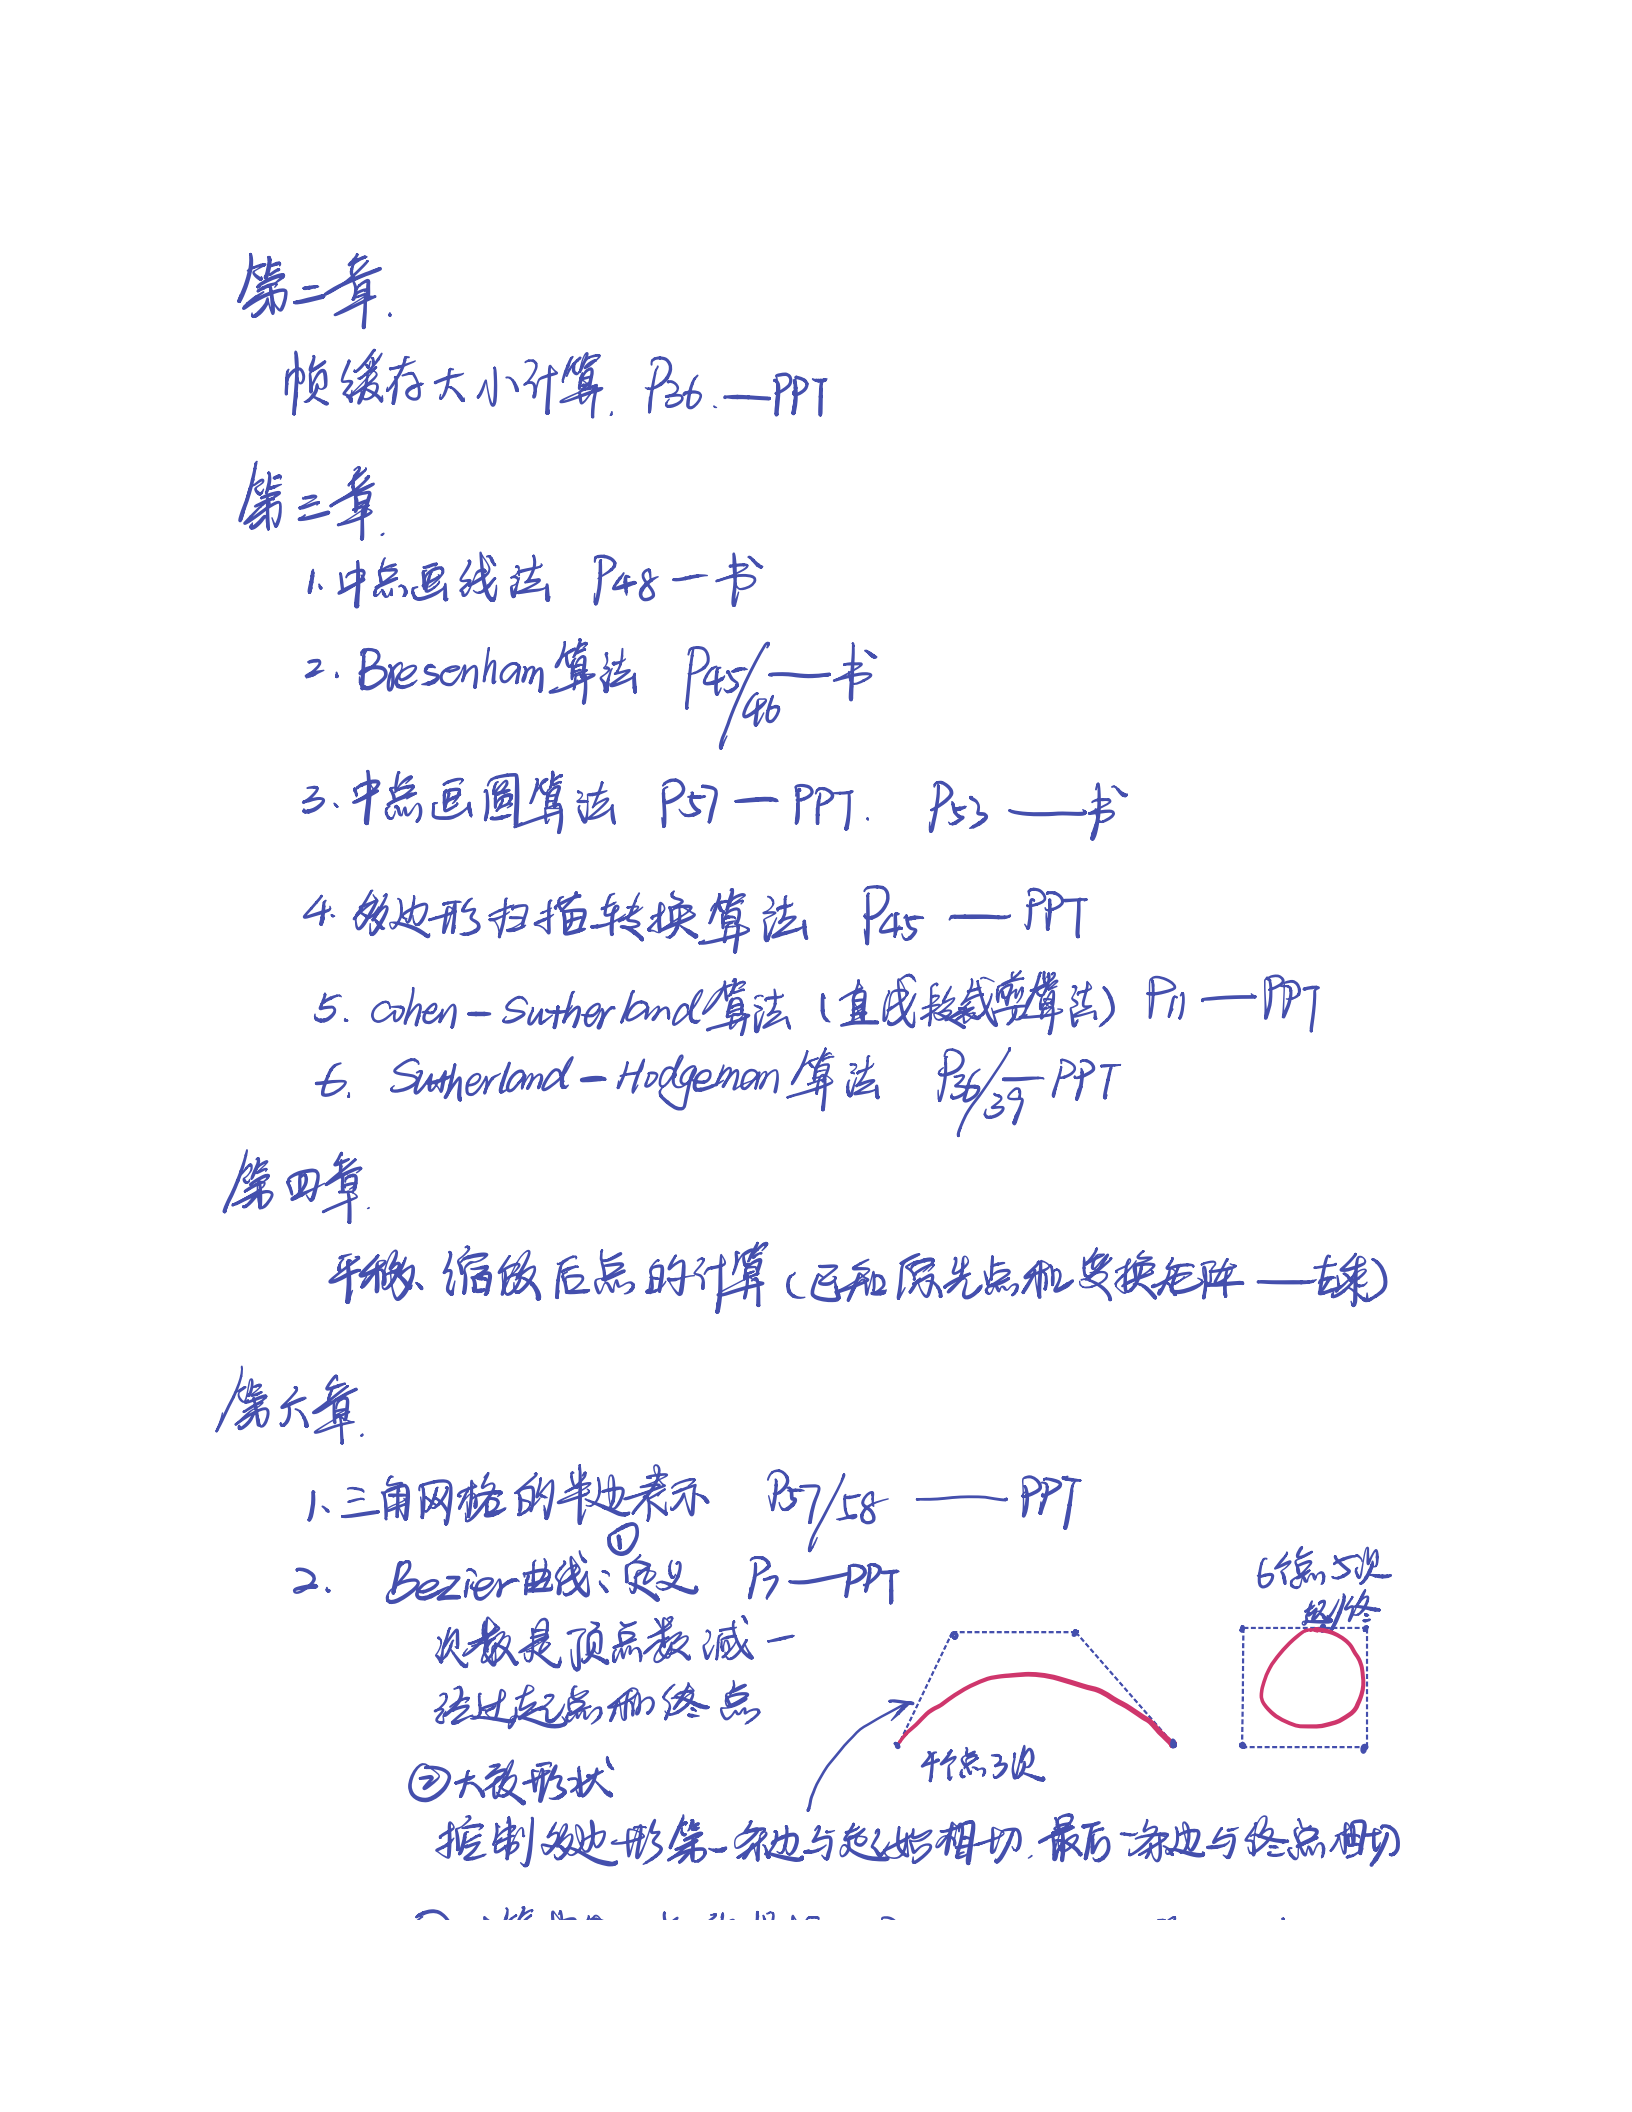 第二章.
帧缓存大小计算. P36.—PPT
第三章.
1.中点画线法 P48—书
2.Bresenham算法 P45/46—书
3.中点画圆算法 P57—PPT. P53—书
4.多边形扫描转换算法 P45—PPT
5.Cohen-Sutherland算法(直线段裁剪算法) P11—PPT
6.Sutherland-Hodgeman算法 P36/39—PPT
第四章.
平移、缩放后点的计算(已知原先点和变换矩阵——左乘)
第六章.
1.三角网格的半边表示 P57/58——PPT
2. Bezier曲线:①定义 P7—PPT
次数是顶点数减一
经过起点和终点
6个点5次
起/终
4个点3次
②大致形状
控制多边形第一条边与起始相切.最后一条边与终点相切